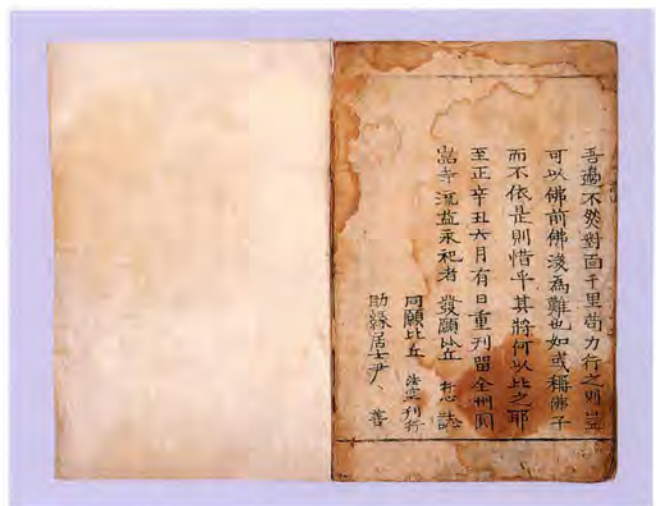 吾不然對面千里苟力行之則豈
可以佛前佛後為難也如或稱佛子
而不依是則惜乎其將何以比之耶
至正辛丑六月有日重刊留全州圓
嵓寺流益永祀者 發願比丘 誌
同願比丘 法空刊行
助緣居士尹、善